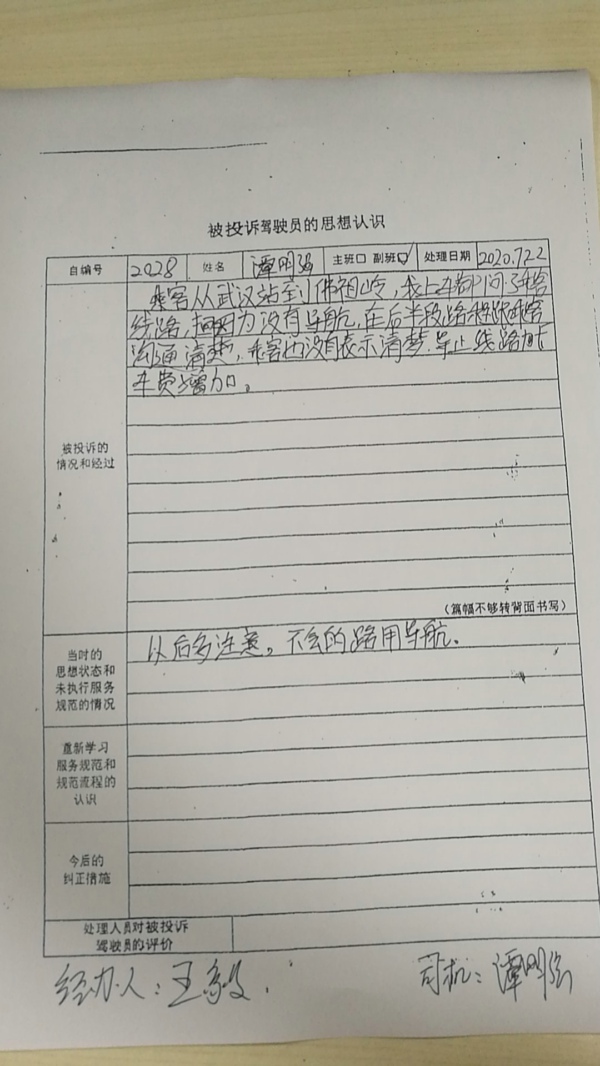 被投诉驾驶员的思想认识
自编号 2028 姓名 谭明强 主班口 副班☑ 处理日期 2020.7.22
被投诉的
情况和经过
乘客从武汉站到佛祖岭,我上车都门问了乘客
线路,因为没有导航,在后半段路程跟乘客
沟通清楚,乘客也没有表示清梦.导止线路
车费增加。
(篇幅不够转背面书写)
当时的
思想状态和
未执行服务
规范的情况
以后多注意。不会的路用导航.
重新学习
服务规范和
规范流程的
认识
今后的
纠正措施
处理人员对被投诉
驾驶员的评价
经办人:王毅. 司机:谭明强